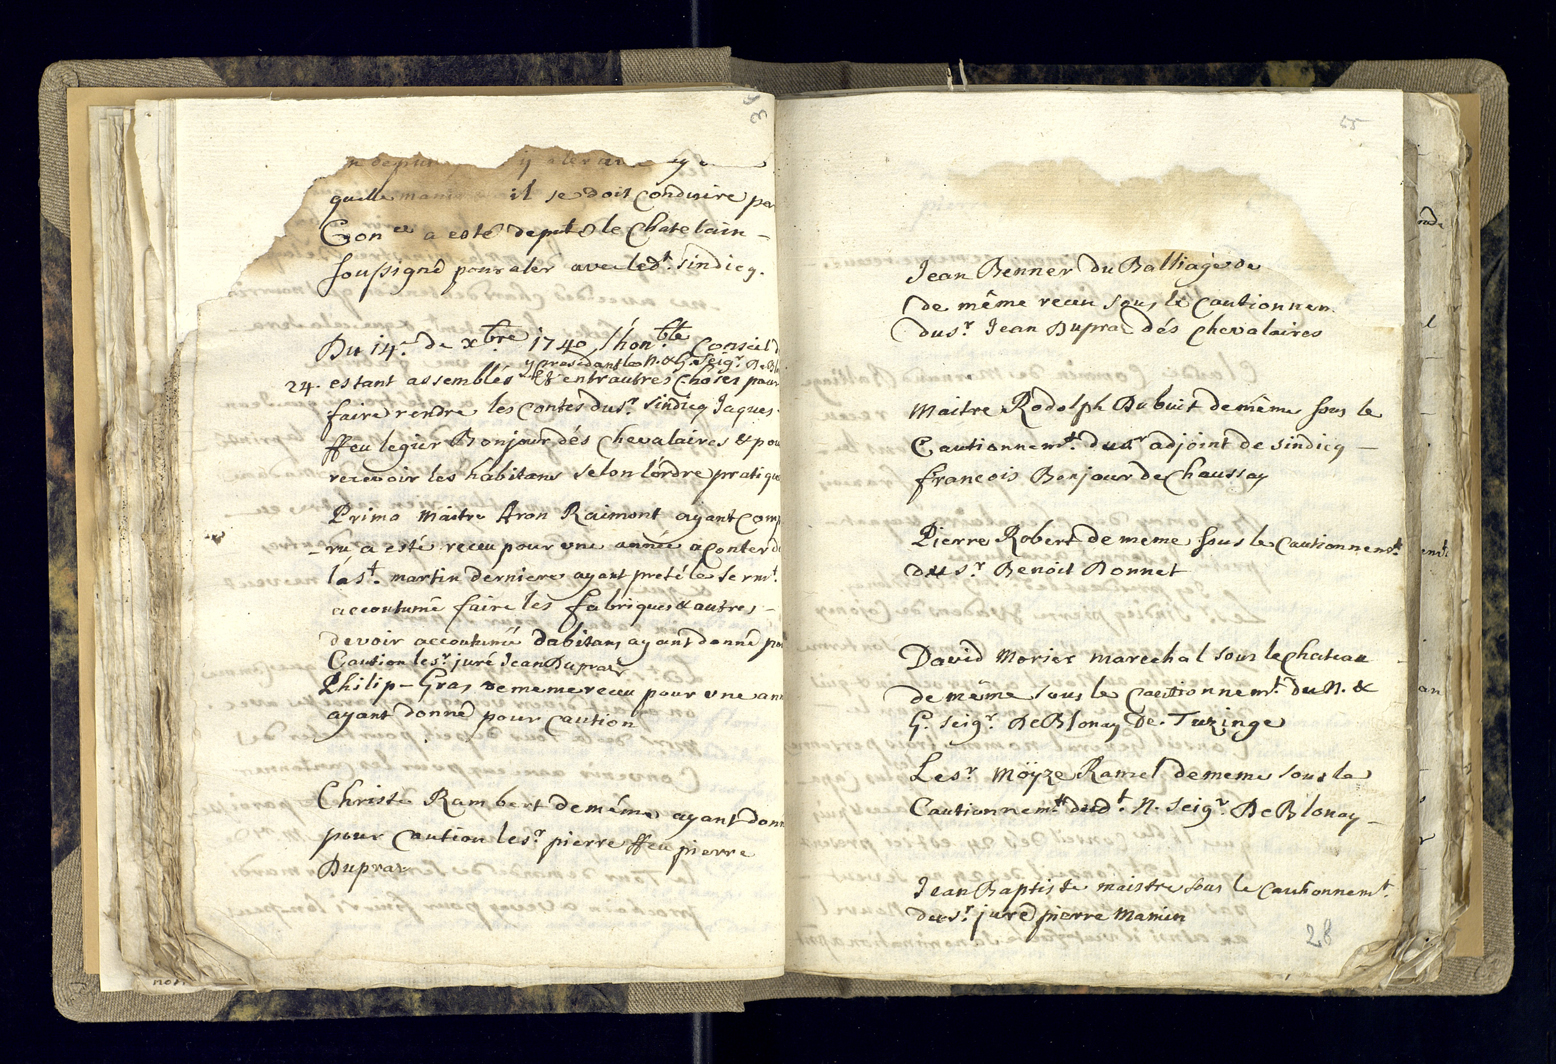 39
quelle mani il se doit conduire par
Con ce a esté deputé le Chatelain -
soussigné pour aler avec led.t sindicq.
Du 14e de xbre 1740 l'honble Conseil
y presidant le N. & G. Seigr. De Bl
24. estant assemblés & entr autres choses pour
faire rendre les contes du sr. sindicq Jaques
ffeu legier Bonjour dés Chevalaires & pour
recevoir les habitans selon l'ordre pratique
Primo maitre Aron Raimont ayant comp
-ru a esté receu pour une année a conter de
la st. martin derniere ayant preté le serm.t
accoutumé faire les fabriques & autres -
devoir accoutumé d'abitans ayant donné pour
Caution le sr. juré Jean Dupraz
Philip-Gras de meme receu pour une ann
ayant donné pour caution
Christe Rambert de même ayant donn
pour Caution le sr. pierre ffeu pierre
Dupraz
55
Jean Benner du Balliage de
de même receu sous le Cautionnem
du sr. Jean Dupraz dés Chevalaires
Maitre Rodolph Dubuit de même sous le
Cautionnem.t du sr adjoint de sindicq -
francois Bonjour de Chaussay
Pierre Robert de meme sous le Cautionnem.t
du sr. Benoit Bonnet
David Morier marechal sous le chateau
de même sous le Cautionnem.t du N. &
G. Seigr. De Blonay De Tuzinge
Le sr. Möyze Ramel de meme sous le
Cautionnem.t dud.t N. Seigr. De Blonay -
Jean Baptiste maistre sous le cautionnem.t
du sr. juré pierre Mamin
28